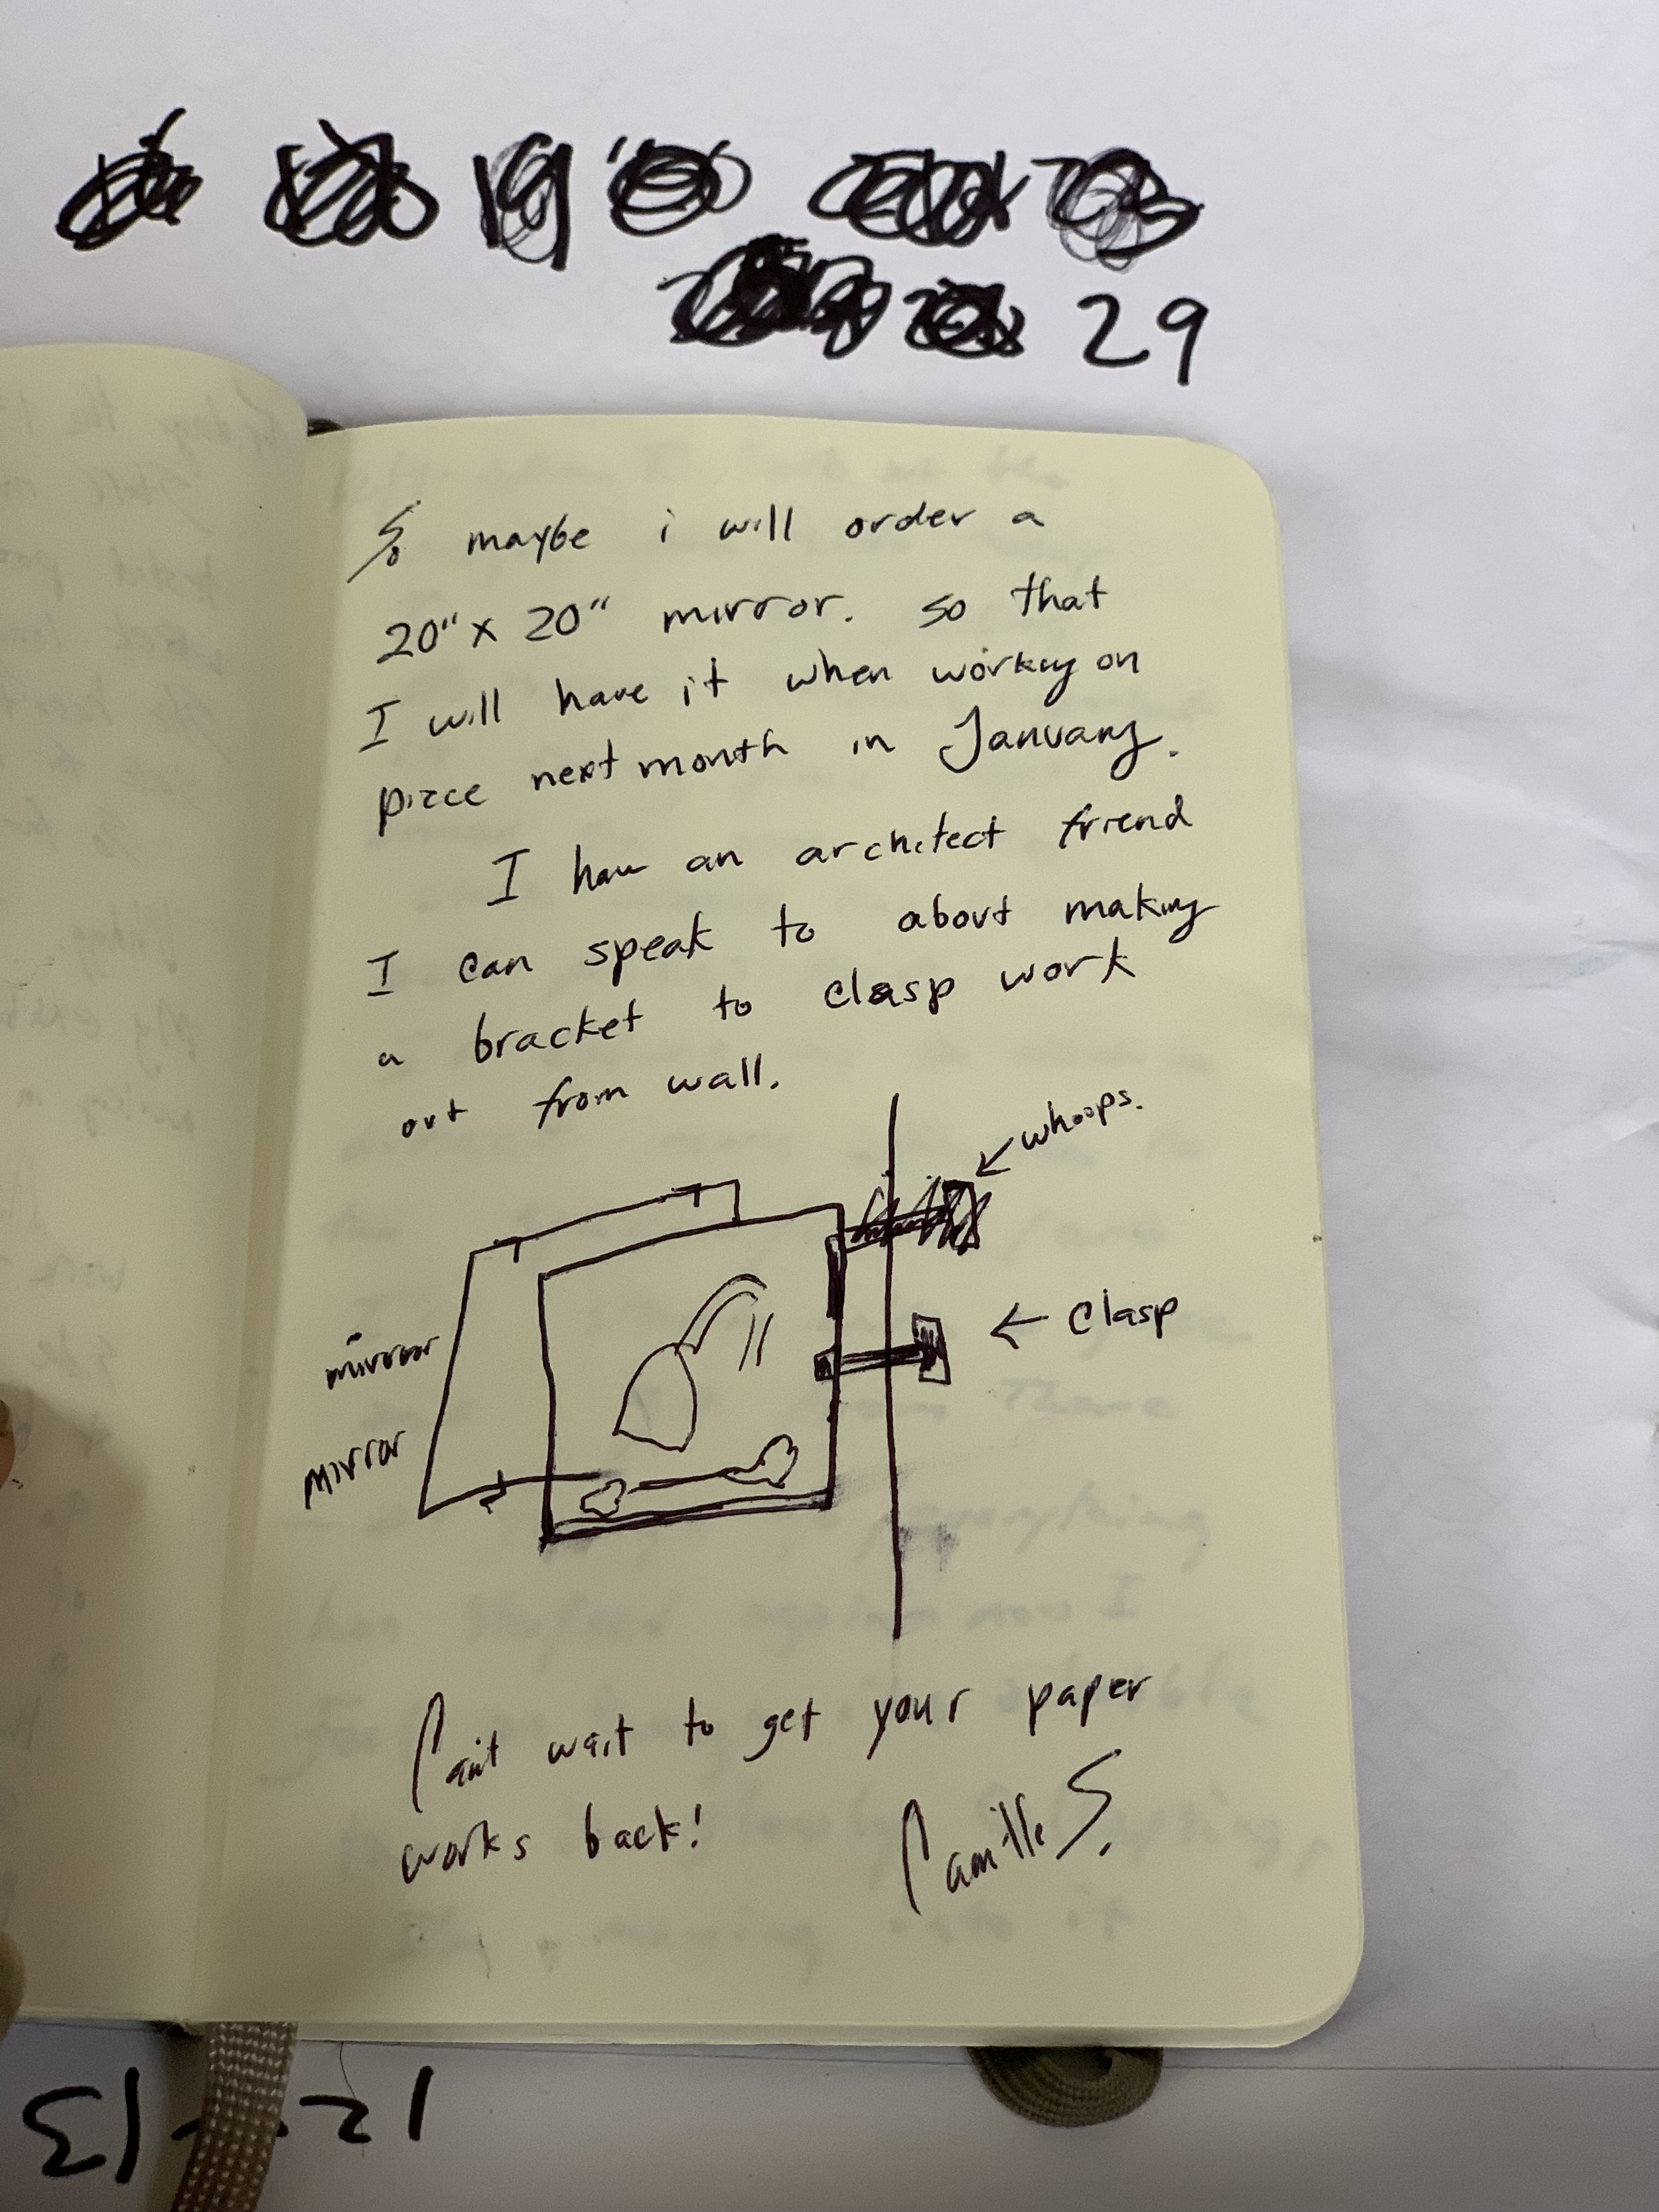 19
29
So maybe i will order a
20" x 20" mirror. so that
I will have it when working on
piece next month in January.
I have an architect friend
I can speak to about making
a bracket to clasp work
out from wall.
← whoops.
← clasp
mirror
mirror
Can't wait to get your paper
works back!
Camille S.
12-13